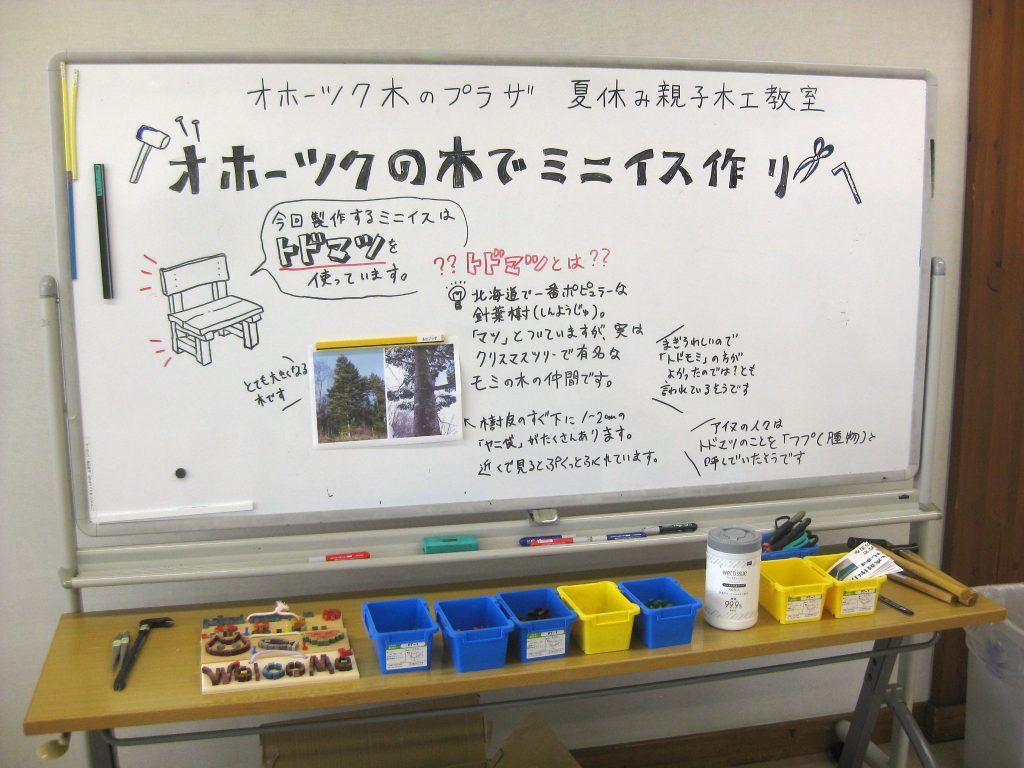 オホーツク木のプラザ 夏休み親子木工教室
オホーツクの木でミニイス作り
今回製作するミニイスは
トドマツを
使っています。
??トドマツとは??
北海道で一番ポピュラーな
針葉樹(しんようじゅ)。
「マツ」とついていますが、実は
クリスマスツリーで有名な
モミの木の仲間です。
まぎらわしいので
「トドモミ」の方が
よかったのでは?とも
言われているそうです
とても大きくなる
木です
樹皮のすぐ下に1~2cmの
「ヤニ袋」がたくさんあります。
近くで見るとぷくっとふくれています。
アイヌの人々は
トドマツのことを「フプ(腫物)と
呼んでいたそうです
wet tissue
99.9%
Welcome